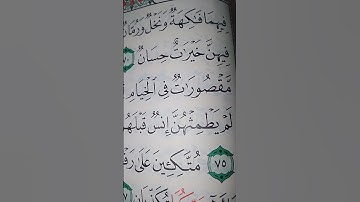 فِيهِمَا فَٰكِهَةٌ وَنَخْلٌ وَرُمَّانٌ
فِيهِنَّ خَيْرَٰتٌ حِسَانٌ
مَّقْصُورَٰتٌ فِى ٱلْخِيَامِ
لَمْ يَطْمِثْهُنَّ إِنسٌ قَبْلَهُمْ
٧٥ مُتَّكِـِٔينَ عَلَىٰ
تُكَذِّبَانِ